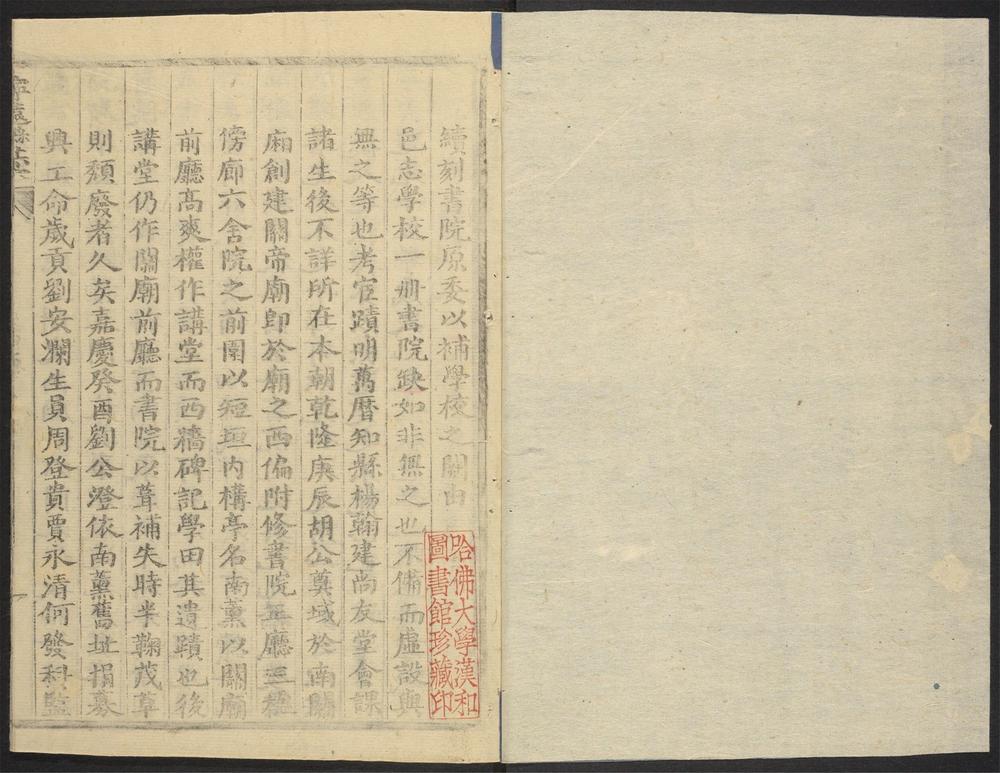 續刻書院原委以補學校之闕由
邑志學校一册書院缺如非無之也不備而虛設與
無之等也考宦蹟明萬曆知縣楊翰建尚友堂會課
諸生後不詳所在本朝乾隆庚辰胡公奠域於南關
廟創建關帝廟即於廟之西偏附修書院正廳三楹
傍廊六舍院之前圍以短垣内構亭名南薰以關廟
前廳髙爽權作講堂而西牆碑記學田其遺蹟也後
講堂仍作關廟前廳而書院以葺補失時半鞠茂草
則頹廢者久矣嘉慶癸酉劉公澄依南薰舊址捐募
興工命歲貢劉安瀾生員周登貴賈永清何發科監
寧遠縣志
哈佛大學漢和
圖書館珍藏印